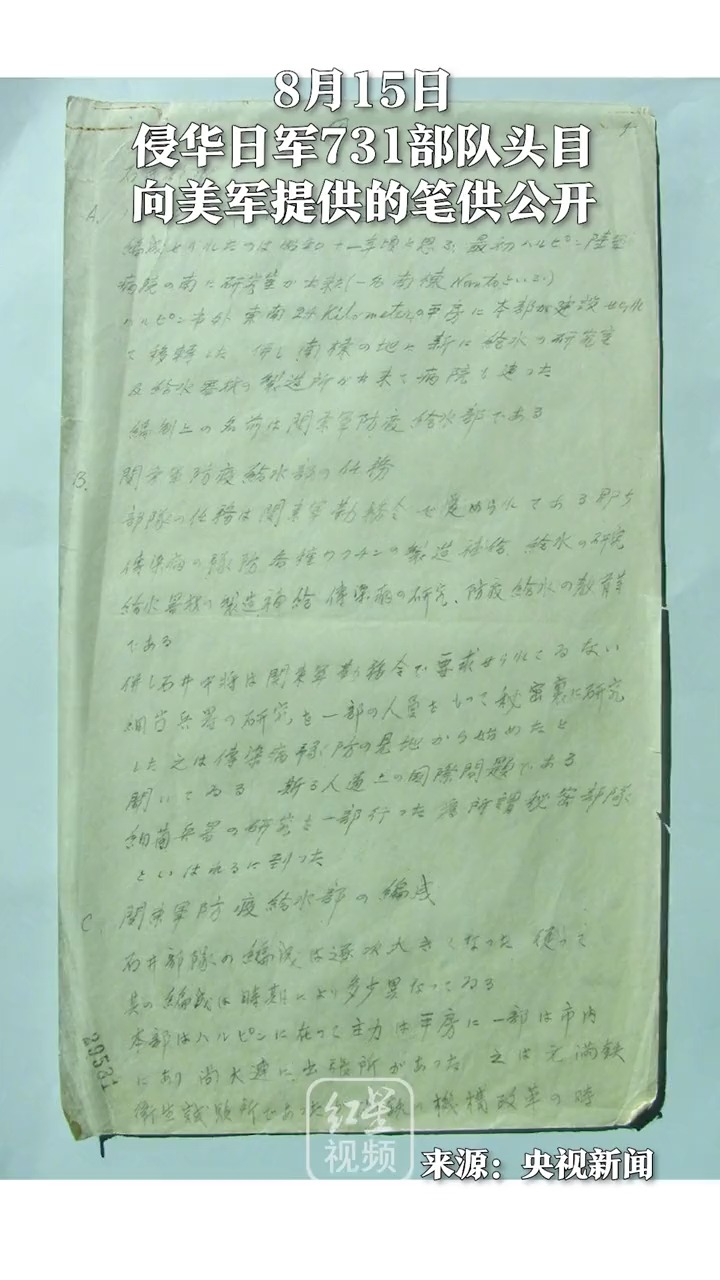 8月15日
侵华日军731部队头目
向美军提供的笔供公开
4
A.
編成せられたのは昭和十一年頃と思ふ 最初ハルピン陸軍
病院の南に研究室が出来(一名南棟 といふ)
ハルピン市外東南24Kilometerの平房に本部が建設せられ
て移転した 併し南棟の地に新に給水の研究室
及給水器材の製造所が出来て病院も建つた
編制上の名前は関東軍防疫給水部である
B.
関東軍防疫給水部の任務
部隊の任務は関東軍勤務令で定められてある即ち
傳染病の豫防各種ワクチンの製造補給、給水の研究
給水器材の製造補給 傳染病の研究、防疫給水の教育等
である
併し石井中将は関東軍勤務令で要求せられてゐない
細菌兵器の研究を一部の人員をもつて秘密裏に研究
した 之は傳染病豫防の見地から始めたと
聞いてゐる 斯る人道上の国際問題である
細菌兵器の研究を一部行つた為所謂秘密部隊
といはれるに到つた
C.
関東軍防疫給水部の編成
石井部隊の編成は逐次大きくなつた 従って
其の編成は時期により多少異なつてゐる
本部はハルピンに在つて主力は平房に一部は市内
にあり尚大連に出張所があつた 之は元満鉄
衛生試験所であつた 機構改革の時
29531
红星
视频
来源：央视新闻